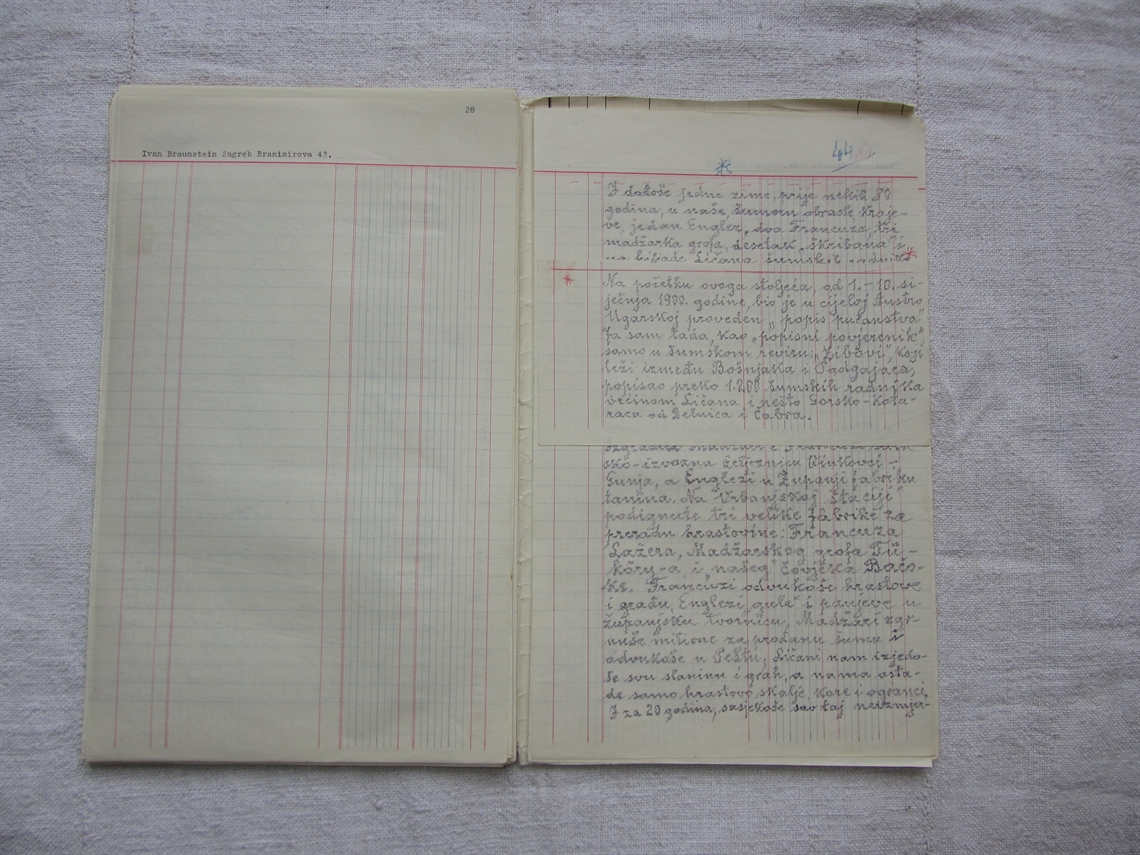 28
Ivan Braunstein Zagreb Branimirova 43.
44
*
I dođoše jedne zime, prije nekih 80
godina, u naše, šumom obrasle kraje-
ve, jedan Englez, dva Francuza, tri
madžarska grofa, desetak „škribana" i
hiljade Ličana šumskih radnika *
* Na početku ovoga stoljeća, od 1.-10. si-
ječnja 1900. godine, bio je u cijeloj Austro
Ugarskoj proveden „popis pučanstva"
Ja sam tada, kao „popisni povjerenik"
samo u šumskom reviru: „Žibovi", koji
leži između Bošnjaka i Podgajaca,
popisao preko 1.200 šumskih radnika
većinom Ličana i nešto Gorsko-Kota-
raca od Delnica i Čabra.
sko-izvoznu željeznicu Vinkovci-
Gunja, a Englezi u Županji fabriku
tanina. Na Vrbanjskoj štaciji
podignute tri velike fabrike za
preradu hrastovine: Francuza
Lažera, Madžarskog grofa Tü-
köry-a i „našeg" čovjeka Bačs-
ke. Francuzi odvukoše hrastove
i građu, Englezi „gule" i panjeve u
županjsku tvornicu, Madžari zgr-
nuše milione za prodanu šumu i
odvukoše u Peštu, Ličani nam izjedo-
še svu slaninu i grah, a nama osta-
de samo hrastovo skalje, kore i ogranci.
I za 20 godina, sasjekoše sav taj neizmjer-